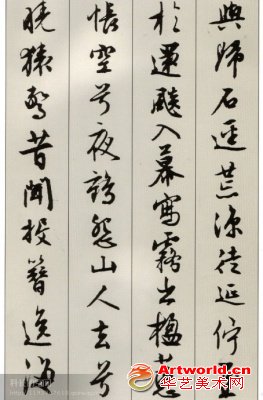 與歸石逕荒涼徒延佇至
於還飆入幕寫霧出楹蕙
帳空兮夜鶴怨山人去兮
曉猿驚昔聞投簪逸海
Artworld.cn
华艺美术网